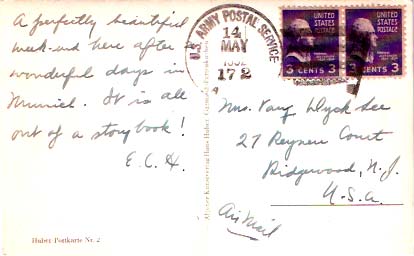 A perfectly beautiful
week-end here after
wonderful days in
Munich. It is all
out of a storybook!
E.C.H.
Huber Postkarte Nr. 2
U.S. ARMY POSTAL SERVICE
14
MAY
1952
172
UNITED STATES POSTAGE
3 CENTS 3
UNITED STATES POSTAGE
3 CENTS 3
Mrs. Van Dyck
27 Court
Ridgewood, N.J.
U.S.A.
Air Mail